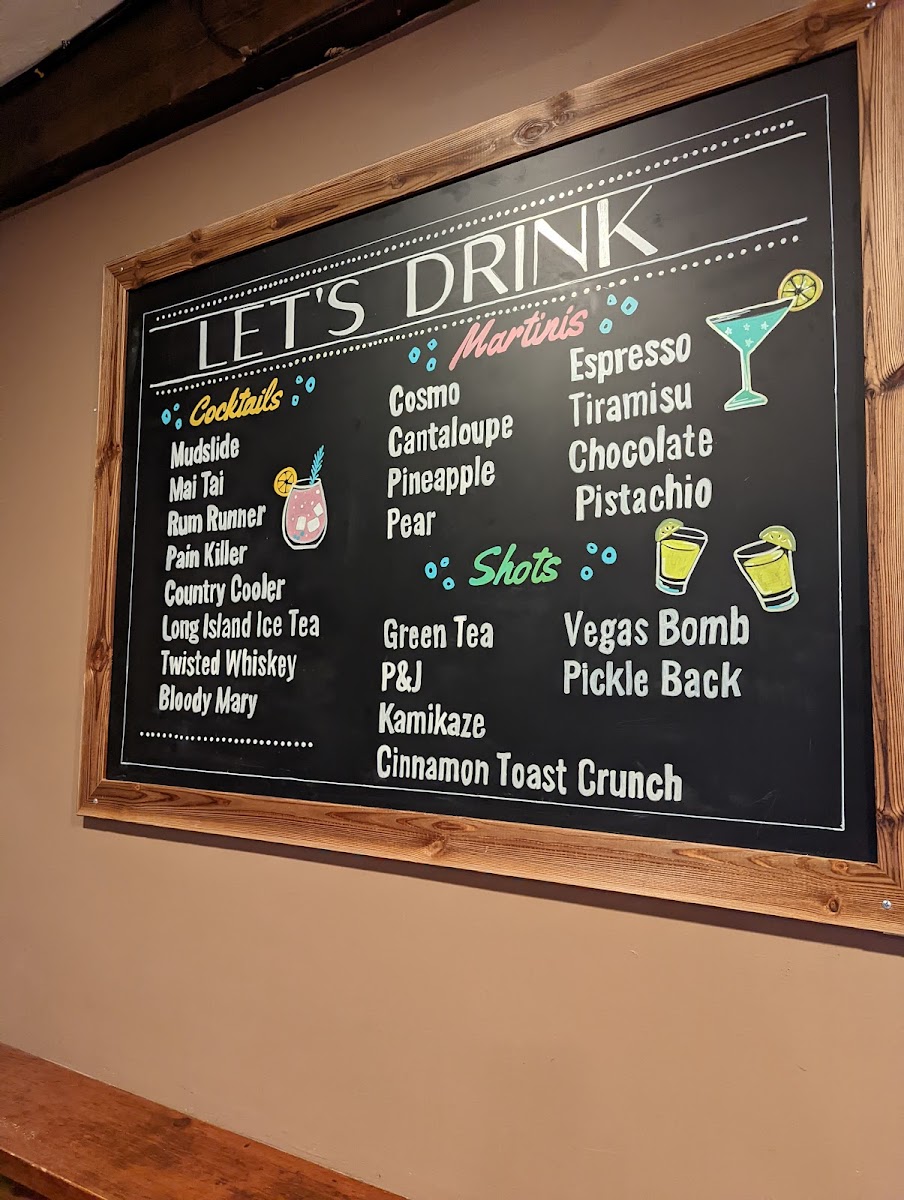 LET'S DRINK
Cocktails
Mudslide
Mai Tai
Rum Runner
Pain Killer
Country Cooler
Long Island Ice Tea
Twisted Whiskey
Bloody Mary
Martinis
Cosmo
Cantaloupe
Pineapple
Pear
Espresso
Tiramisu
Chocolate
Pistachio
Shots
Green Tea
P&J
Kamikaze
Cinnamon Toast Crunch
Vegas Bomb
Pickle Back